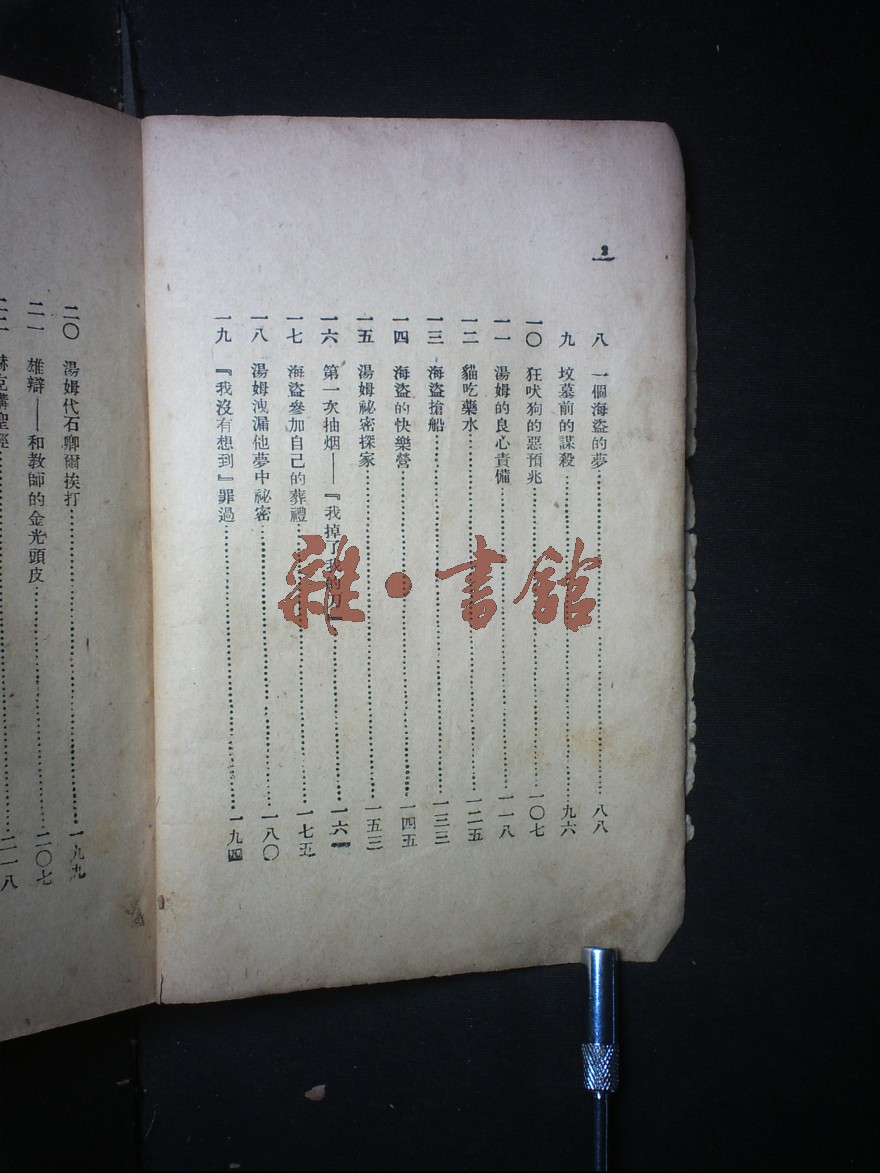 2
八 一個海盜的夢……八八
九 墳墓前的謀殺……九六
一〇 狂吠狗的惡預兆……一〇七
一一 湯姆的良心責備……一一八
一二 貓吃藥水……一二五
一三 海盜搶船……一三三
一四 海盜的快樂營……一四五
一五 湯姆祕密探家……一五三
一六 第一次抽烟——『我掉了我的刀』……一六一
一七 海盜參加自己的葬禮……一七五
一八 湯姆洩漏他夢中祕密……一八〇
一九 『我沒有想到』罪過……一九四
二〇 湯姆代石卿爾挨打……一九九
二一 雄辯——和教師的金光頭皮……二〇七
二二 赫克講聖經……二一八
雜·書館